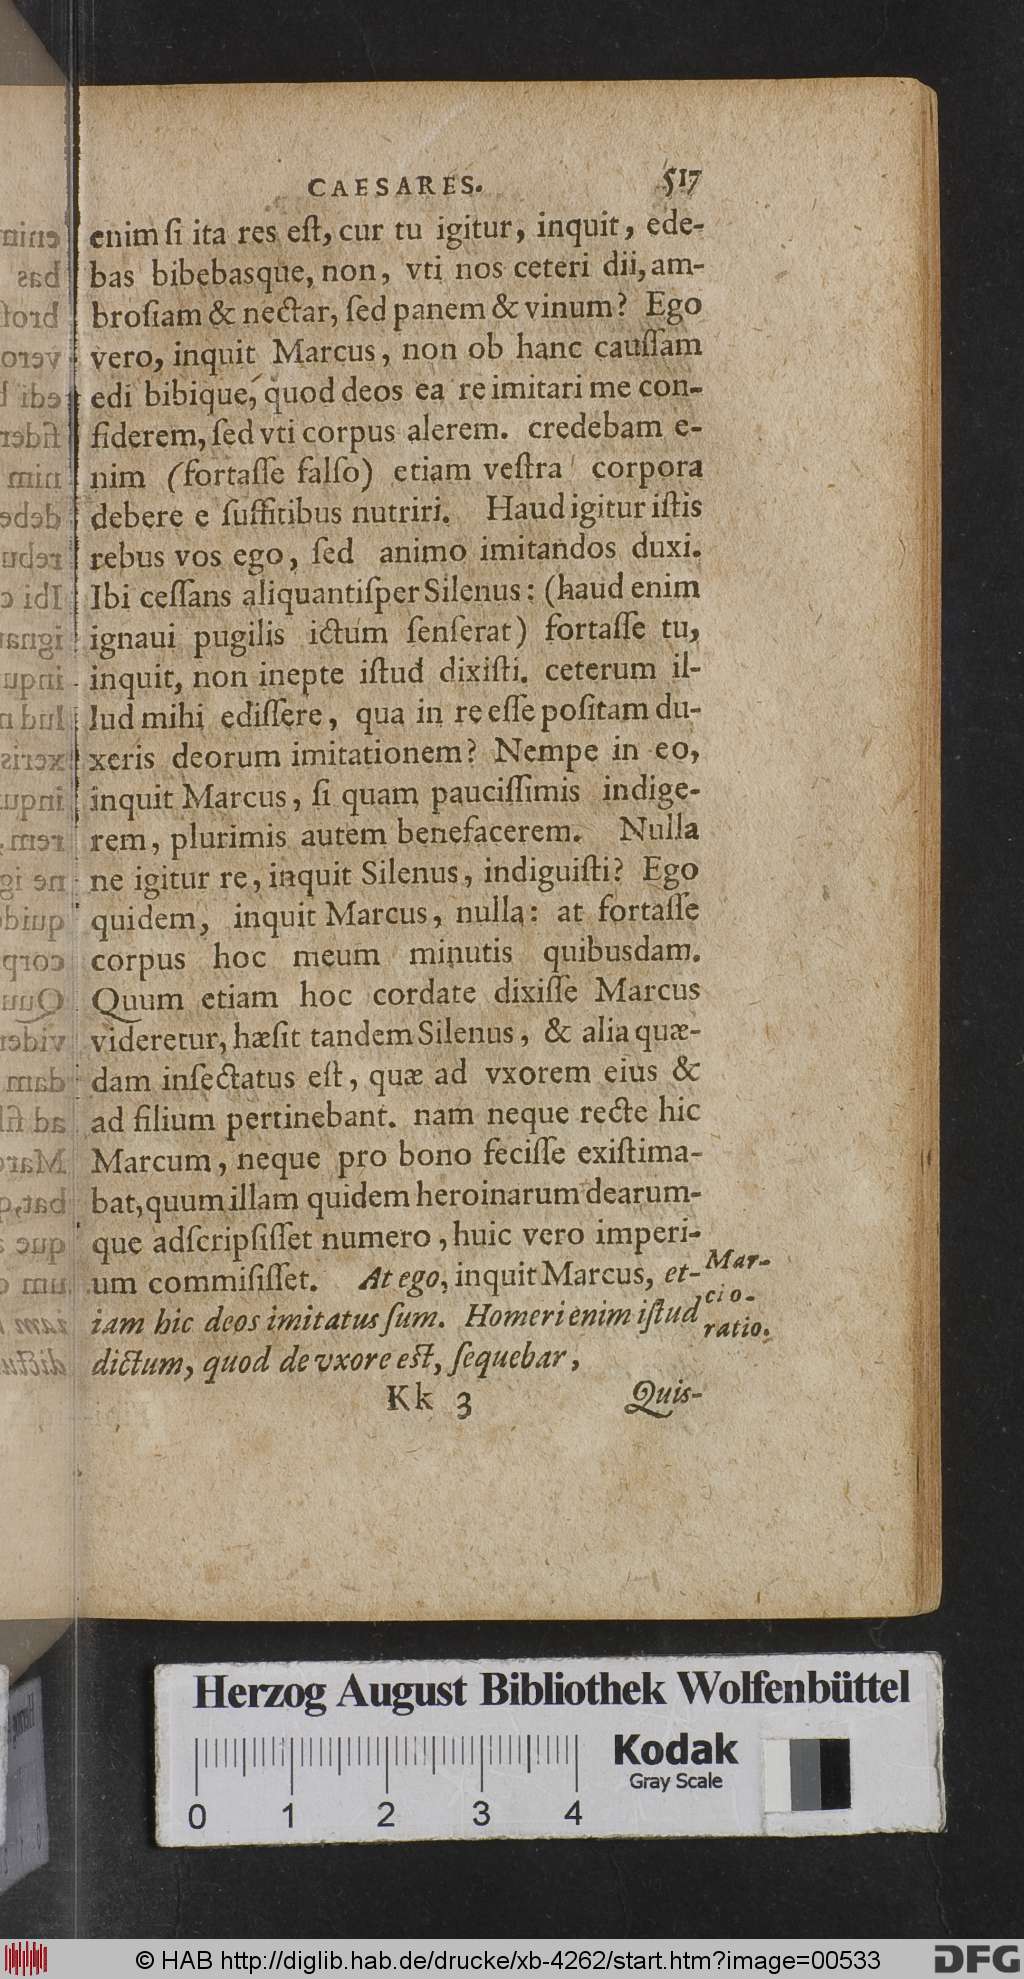 CAESARES. 517
enim ſi ita res eſt, cur tu igitur, inquit, ede-
bas bibebasque, non, vti nos ceteri dii, am-
broſiam & nectar, ſed panem & vinum? Ego
vero, inquit Marcus, non ob hanc cauſſam
edi bibique, quod deos ea re imitari me con-
fiderem, ſed vti corpus alerem. credebam e-
nim (fortaſſe falſo) etiam veſtra corpora
debere e ſuffitibus nutriri. Haud igitur iſtis
rebus vos ego, ſed animo imitandos duxi.
Ibi ceſſans aliquantiſper Silenus: (haud enim
ignaui pugilis ictum ſenſerat) fortaſſe tu,
inquit, non inepte iſtud dixiſti. ceterum il-
lud mihi ediſſere, qua in re eſſe poſitam du-
xeris deorum imitationem? Nempe in eo,
inquit Marcus, ſi quam pauciſſimis indige-
rem, plurimis autem benefacerem. Nulla
ne igitur re, inquit Silenus, indiguiſti? Ego
quidem, inquit Marcus, nulla: at fortaſſe
corpus hoc meum minutis quibusdam.
Quum etiam hoc cordate dixiſſe Marcus
videretur, hæſit tandem Silenus, & alia quæ-
dam inſectatus eſt, quæ ad vxorem eius &
ad filium pertinebant. nam neque recte hic
Marcum, neque pro bono feciſſe exiſtima-
bat, quum illam quidem heroinarum dearum-
que adſcripſiſſet numero, huic vero imperi-
um commiſiſſet. At ego, inquit Marcus, et-
iam hic deos imitatus ſum. Homeri enim iſtud
dictum, quod de vxore eſt, ſequebar,
Mar-
cio-
ratio.
Kk 3 Quis-
Herzog August Bibliothek Wolfenbüttel
Kodak
Gray Scale
0 1 2 3 4
© HAB http://diglib.hab.de/drucke/xb-4262/start.htm?image=00533
DFG